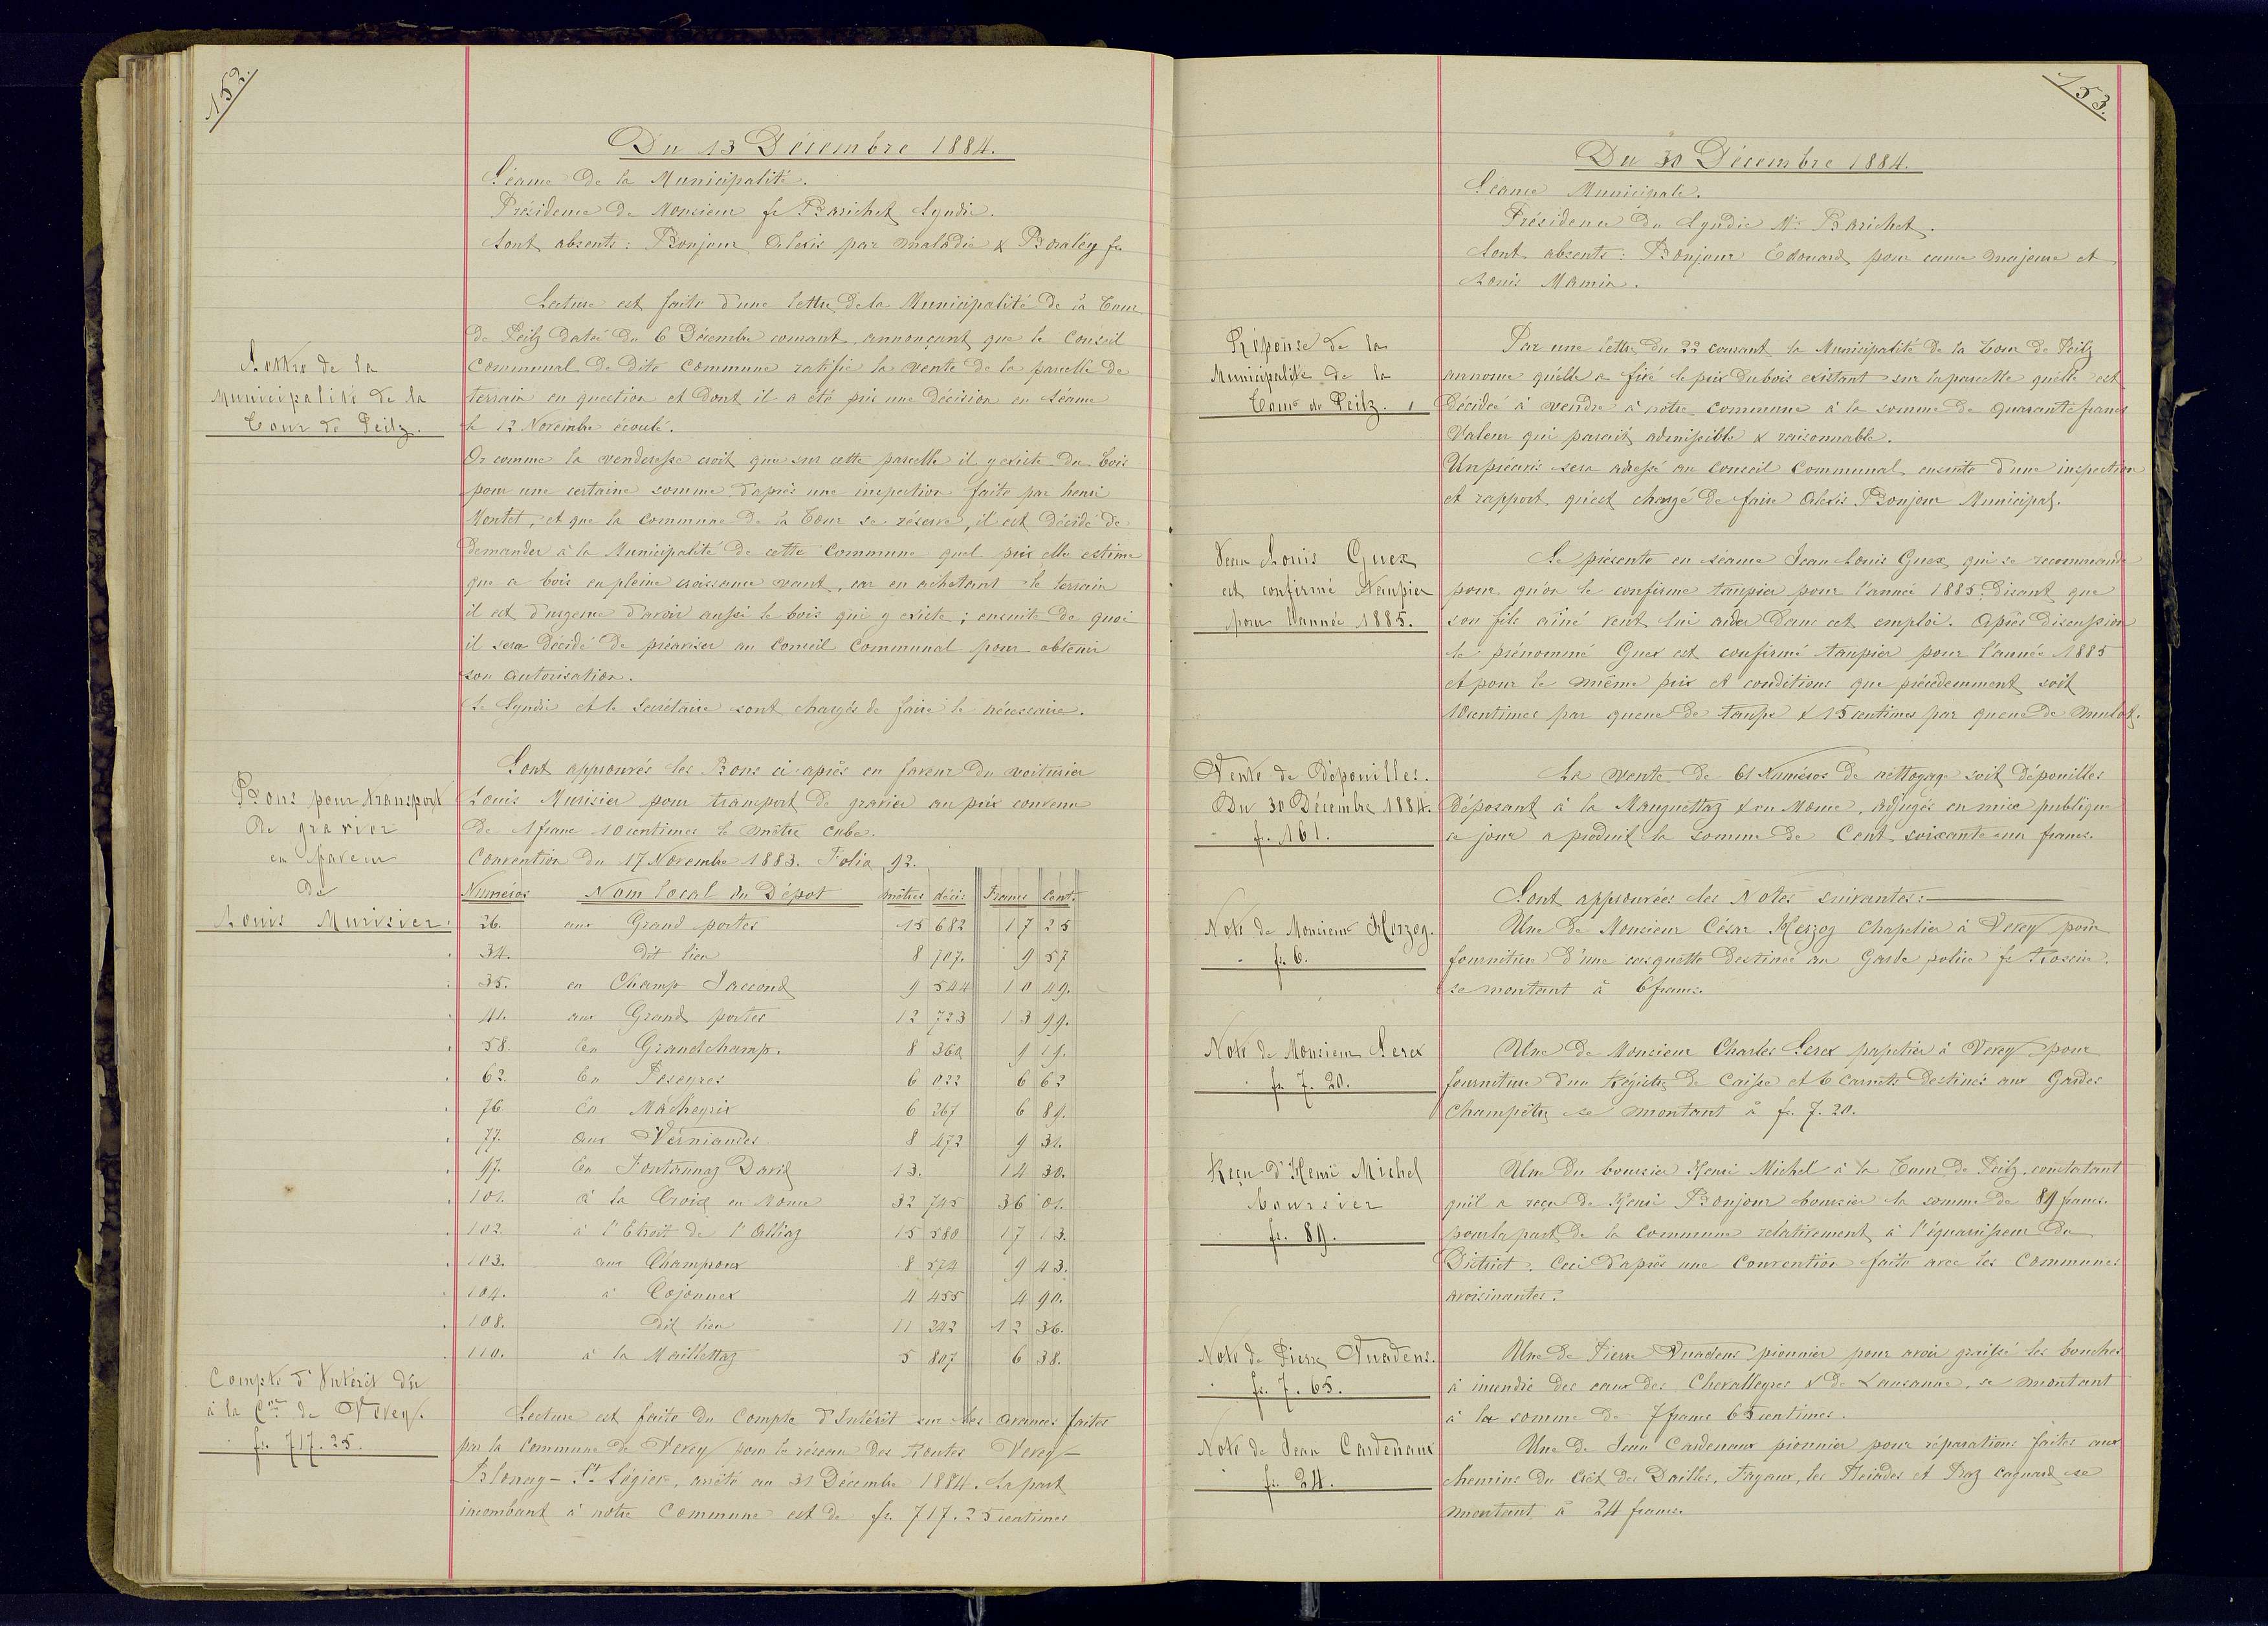 152.
Du 13 Décembre 1884.
Séance de la Municipalité.
Présidence de Monsieur fs Barichet Syndic.
Sont absents: Bonjour Alexis par maladie & Boraley fs
Lettre de la
Municipalité de la
Tour de Peilz.
Lecture est faite d'une lettre de la Municipalité de la Tour
de Peilz datée du 6 Décembre courant, annonçant que le Conseil
Communal de dite commune ratifie la vente de la parcelle de
terrain en question et dont il a été pris une décision en séance
le 12 Novembre écoulé.
Or comme la venderesse croit que sur cette parcelle il y existe du bois
pour une certaine somme d'après une inspection faite par henri
Montet, et que la commune de la Tour se réserve, il est décidé de
demander à la Municipalité de cette Commune quel prix elle estime
que ce bois en pleine croissance vaut, car en achetant le terrain
il est d'urgence d'avoir aussi le bois qui y existe; ensuite de quoi
il sera décidé de préaviser au Conseil Communal pour obtenir
son autorisation.
Le Syndic et le Secrétaire sont chargés de faire le nécessaire.
Bons pour transport
de gravier
en faveur
de
Louis Murisier.
Sont approuvés les Bons ci-après en faveur du voiturier
Louis Murisier pour transport de gravier au prix convenu
de 1 franc 10 centimes le mètre cube.
Convention du 17 Novembre 1883. Folio 92.
Numéros Nom local du Dépot mètres déci: Francs Cent.
26. aux Grand portes 15 682 17 25
34. dit lieu 8 707. 9 57
35. en Champ Jaccond 9 544 10 49.
41. aux Grands portes 12 723 13 99.
58. En Grandchamp. 8 360 9 19.
62. En Peseyres 6 022 6 62
76 En Mâcheyrix 6 267 6 89.
77. aux Verniaudes 8 472 9 31.
97. En Fontannaz David 13. 14 30.
101. à la Croix en Mome 32 745 36 01.
102. à l'Etroit de l'Alliaz 15 580 17 13.
103. aux Champoux 8 574 9 43.
104. à Cojonnex 4 455 4 90.
108. dit lieu 11 242 12 36.
110. à la Maillettaz 5 807 6 38.
Compte d'Intérêt dû
à la Cne de Vevey.
fr. 717.25.
Lecture est faite du Compte d'Intérêt sur les avances faites
par la Commune de Vevey pour le réseau des Routes Vevey-
Blonay-St Légier, arrêté au 31 Décembre 1884. La part
incombant à notre Commune est de fr. 717.25 centimes
153.
Du 30 Décembre 1884.
Séance Municipale.
Présidence du Syndic Mr Barichet.
Sont absents: Bonjour Edouard pour cause majeure et
Louis Mamin.
Réponse de la
Municipalité de la
Tour de Peilz.
Par une lettre du 22 courant la Municipalité de la Tour de Peilz
annonce qu'elle a fixé le prix du bois existant sur la parcelle qu'elle est
décidée à vendre à notre commune à la somme de quarante francs
Valeur qui parait admissible & raisonnable.
Un préavis sera adressé au Conseil Communal ensuite d'une inspection
et rapport qu'est chargé de faire Alexis Bonjour Municipal.
Jean Louis Guex
est confirmé Taupier
pour l'année 1885.
Se présente en séance Jean Louis Guex qui se recommande
pour qu'on le confirme taupier pour l'année 1885. Disant que
son fils aîné veut lui aider dans cet emploi. Après discussion
le prénommé Guex est confirmé taupier pour l'année 1885
et pour le même prix et conditions que précédemment soit
10 centimes par queue de taupe & 15 centimes par queue de mulot.
Vente de Dépouilles.
Du 30 Décembre 1884.
fr. 161.
La vente de 61 Numéros de nettoyage soit dépouilles
déposant à la Mauguettaz & en Mome, adjugés en mise publique
ce jour a produit la somme de Cent soixante-un francs.
Sont approuvées les Notes suivantes:
Note de Monsieur Herzog.
fr. 6.
Une de Monsieur César Herzog Chapelier à Vevey pour
fourniture d'une casquette destinée au Garde police fs
se montant à 6 francs.
Note de Monsieur Lerex
fr. 7.20.
Une de Monsieur Charles Lerex papetier à Vevey pour
fourniture d'un Régistre de Caisse et 6 Carnets destinés aux Gardes
Champêtres se montant à fr. 7.20.
Reçu d'Henri Michel
boursier
fr. 89.
Une du boursier Henri Michel à la Tour de Peilz constatant
qu'il a reçu de Henri Bonjour boursier la somme de 89 francs
pour la part de la Commune relativement à l'équarrisseur du
District. Ceci d'après une Convention faite avec les Communes
avoisinantes.
Note de Pierre Vuadens.
fr. 7.65.
Une de Pierre Vuadens pionnier pour avoir graissé les bouches
à incendie des eaux des Chevalleyres & de Lausanne, se montant
à la somme de 7 francs 65 centimes.
Note de Jean Cardenaux
fr. 24.
Une de Jean Cardenaux pionnier pour réparations faites aux
chemins du Crêt des Dailles, Fayaux, les Pleiades et Praz cagnard se
montant à 24 francs.